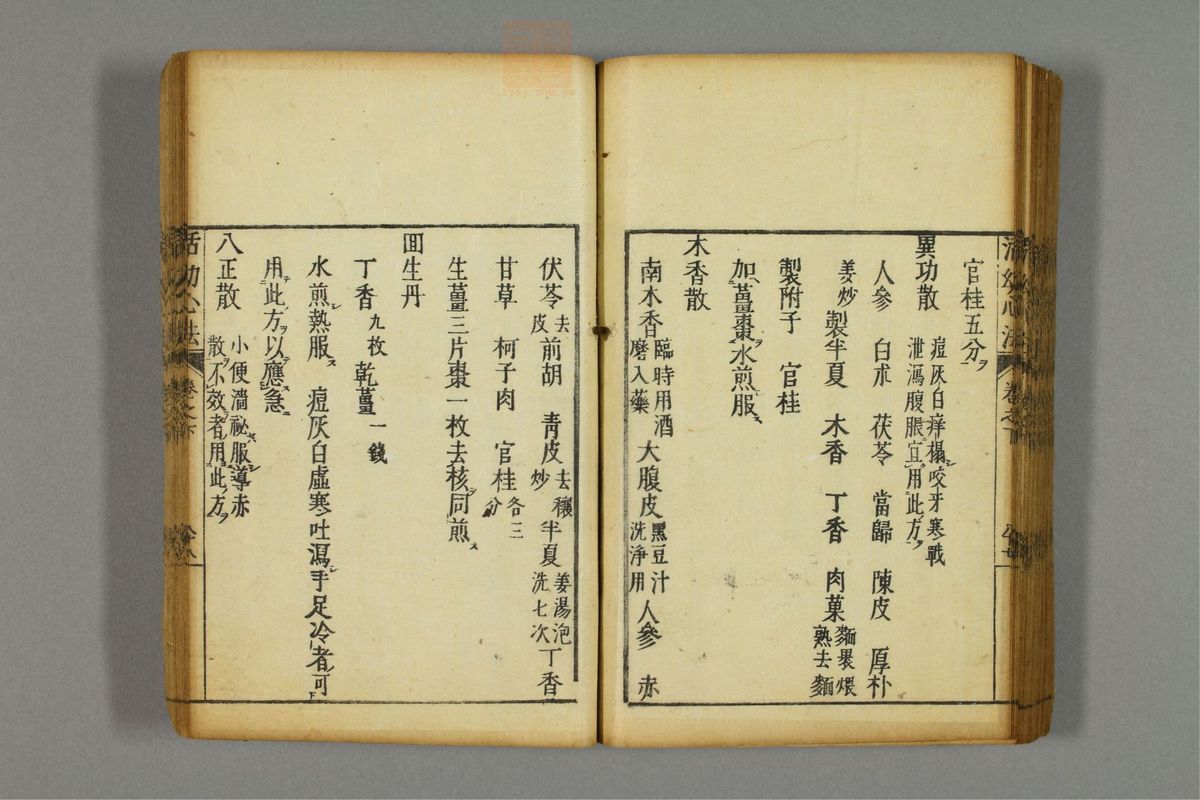 官桂五分
異功散 痘灰白痒榻咬牙寒戰
泄瀉腹脹宜用此方
人參 白朮 茯苓 當歸 陳皮 厚朴
姜炒 製半夏 木香 丁香 肉菓 麵褁煨
熟去麵
製附子 官桂
加薑棗水煎服
木香散
南木香 臨時用酒
磨入藥 大腹皮 黑豆汁
洗淨用 人參 赤
伏苓 去
皮 前胡 青皮 去穰
炒 半夏 姜湯泡
洗七次 丁香
甘草 柯子肉 官桂 各三
分
生薑三片棗一枚去核同煎
囬生丹
丁香 九枚 乾薑 一錢
水煎熱服 痘灰白虛寒吐瀉手足冷者可
用此方以應急
八正散 小便濇祕服導赤
散不效者用此方
活幼心法 卷之下